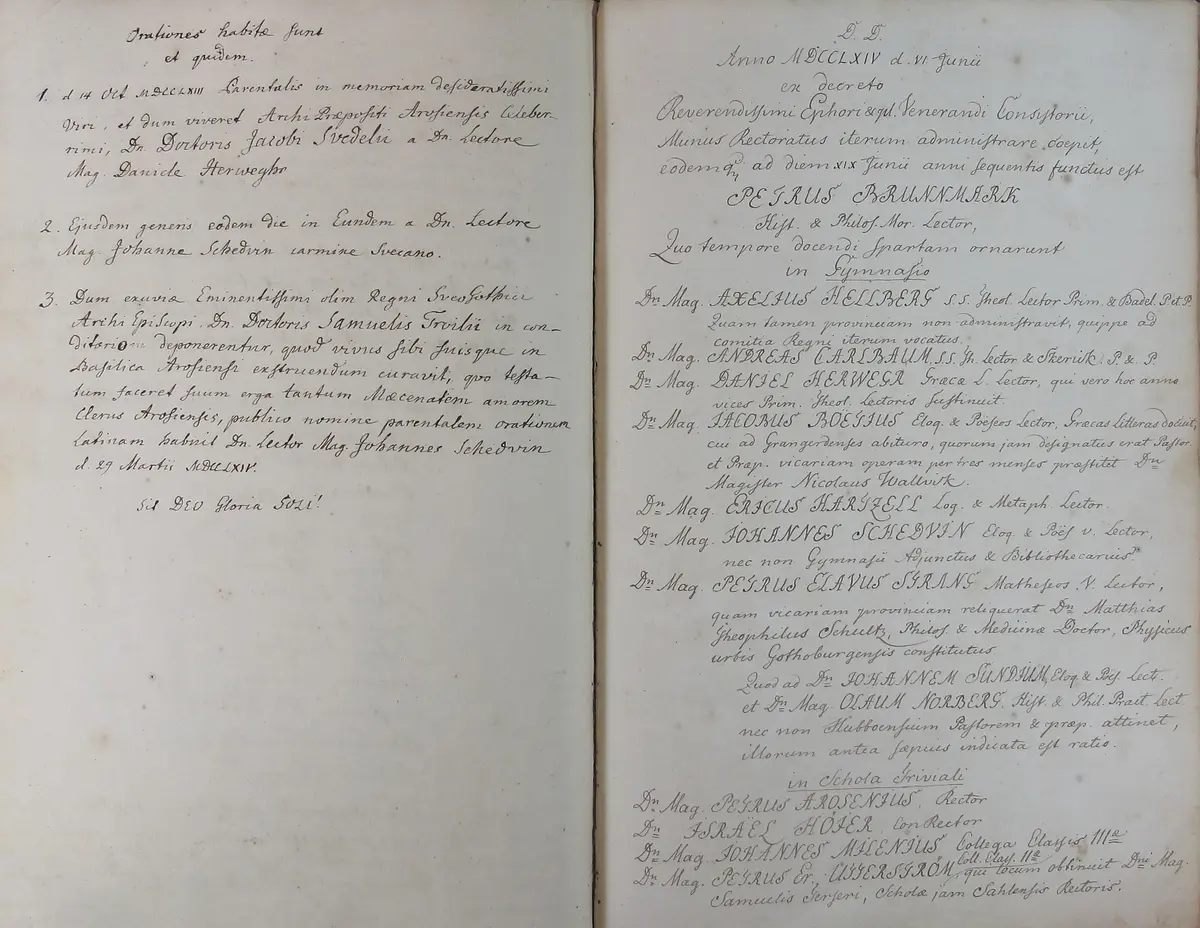 Orationes habitæ sunt
et quidem.
1. d 14 Oct MDCCLXIII Parentalis in memoriam desideratissimi
Viri, et dum viveret Archi Præpositi Arosiensis Celeber-
rimi, Dn. Doctoris Jacobi Svedelii a Dn. Lectore
Mag. Daniele Herweghr
2. Ejusdem generis eodem die in Eundem a Dn. Lectore
Mag. Johanne Schedvin carmine Svecano.
3. Dum exuviæ Eminentissimi olim Regni SveoGothici
Archi Episcopi Dn. Doctoris Samuelis Troilii in con-
ditorio deponerentur, quod vivus sibi suisque in
Basilica Arosiensi exstruendum curavit, quo testa-
tum faceret suum erga tantum Mæcenatem amorem
Clerus Arosiensis, publico nomine parentalem orationem
Latinam habuit Dn. Lector Mag. Johannes Schedvin
d. 29 Martii MDCCLXIV.
Sit DEO Gloria SOLI!
D. D.
Anno MDCCLXIV d. VI Junii
ex decreto
Reverendissimi Ephori & Venerandi Consistorii,
Munus Rectoratus iterum administrare coepit,
eodemq ad diem XIX Junii anni sequentis functus est
PETRUS BRUNNMARK
Hist. & Philos. Mor. Lector,
Quo tempore docendi spartam ornarunt
in Gymnasio
Dn Mag. AXELIUS HELLBERG S.S. Theol. Lector Prim. & Badel. P et P.
Quam tamen provinciam non administravit, quippe ad
comitia Regni iterum vocatus.
Dn Mag. ANDREAS CARLBAUM S.S. Th. Lector & Skeriik. P. & P.
Dn Mag. DANIEL HERWEGR Græcæ L. Lector, qui vero hoc anno
vices Prim. Theol. Lectoris sustinuit.
Dn Mag. JACOBUS BOËTIUS Eloq. & Poëseos Lector, Græcas litteras docuit,
cui ad Grangerdenses abituro, quorum jam designatus erat Pastor
et Præp. vicariam operam per tres menses præstitit Dn
Magister Nicolaus Wallvik.
Dn Mag. ERICUS HARTZELL Log. & Metaph. Lector.
Dn Mag. JOHANNES SCHEDVIN Eloq. & Poës v. Lector,
nec non Gymnasii Adjunctus & Bibliothecarius
Dn Mag. PETRUS ELAVUS STRANG Matheseos V. Lector,
quam vicariam provinciam reliquerat Dn Matthias
Theophilus Schultz, Philos. & Medicinæ Doctor, Physicus
urbis Gothoburgensis constitutus
Quod ad Dn JOHANNEM SUNDIUM, Eloq. & Poës. Lect.
et Dn Mag OLAUM NORBERG, Hist. & Phil. Pract. Lect
nec non Hubboensium Pastorem & præp. attinet,
illorum antea sæpius indicata est ratio.
in Schola Triviali
Dn Mag. PETRUS AROSENIUS. Rector
Dn ISRAËL HÖIER, ConRector
Dn Mag. JOHANNES MILENIUS Collega Classis IIIæ
Dn Mag. PETRUS Er. UTTERSTRÖM Coll. Class. IIæ qui locum obtinuit Dni Mag.
Samuelis Terseri, Scholæ jam Sahlensis Rectoris.